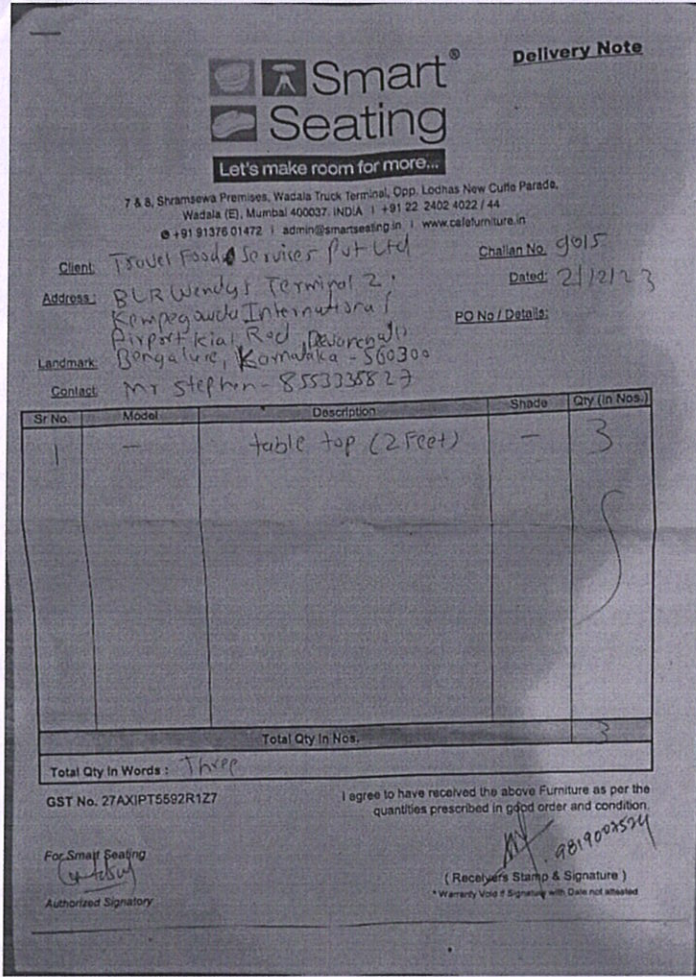 Delivery Note
Smart®
Seating
Let's make room for more...
7 & 8, Shramsewa Premises, Wadala Truck Terminal, Opp. Lodhas New Cuffe Parade,
Wadala (E), Mumbai 400037. INDIA | +91 22 2402 4022 / 44
+91 91376 01472 | admin@smartseating.in | www.cafefurniture.in
Client: Travel Food Services Pvt Ltd
Challan No. 9015
Dated: 2/12/23
Address: BLR Wendys Terminal 2,
Kempegowda International
PO No / Details:
Airport kial Rod
Landmark: Bengalure, Karnataka - 560300
Contact: Mr Stephen - 8553335827
Sr No. Model Description Shade Qty (in Nos.)
1 - table top (2 Feet) - 3
Total Qty In Nos. 3
Total Qty In Words : Three
GST No. 27AXIPT5592R1Z7
I agree to have received the above Furniture as per the
quantities prescribed in good order and condition.
9819002524
For Smart Seating
( Receivers Stamp & Signature )
* Warranty Void if Signature with Date not attested
Authorized Signatory